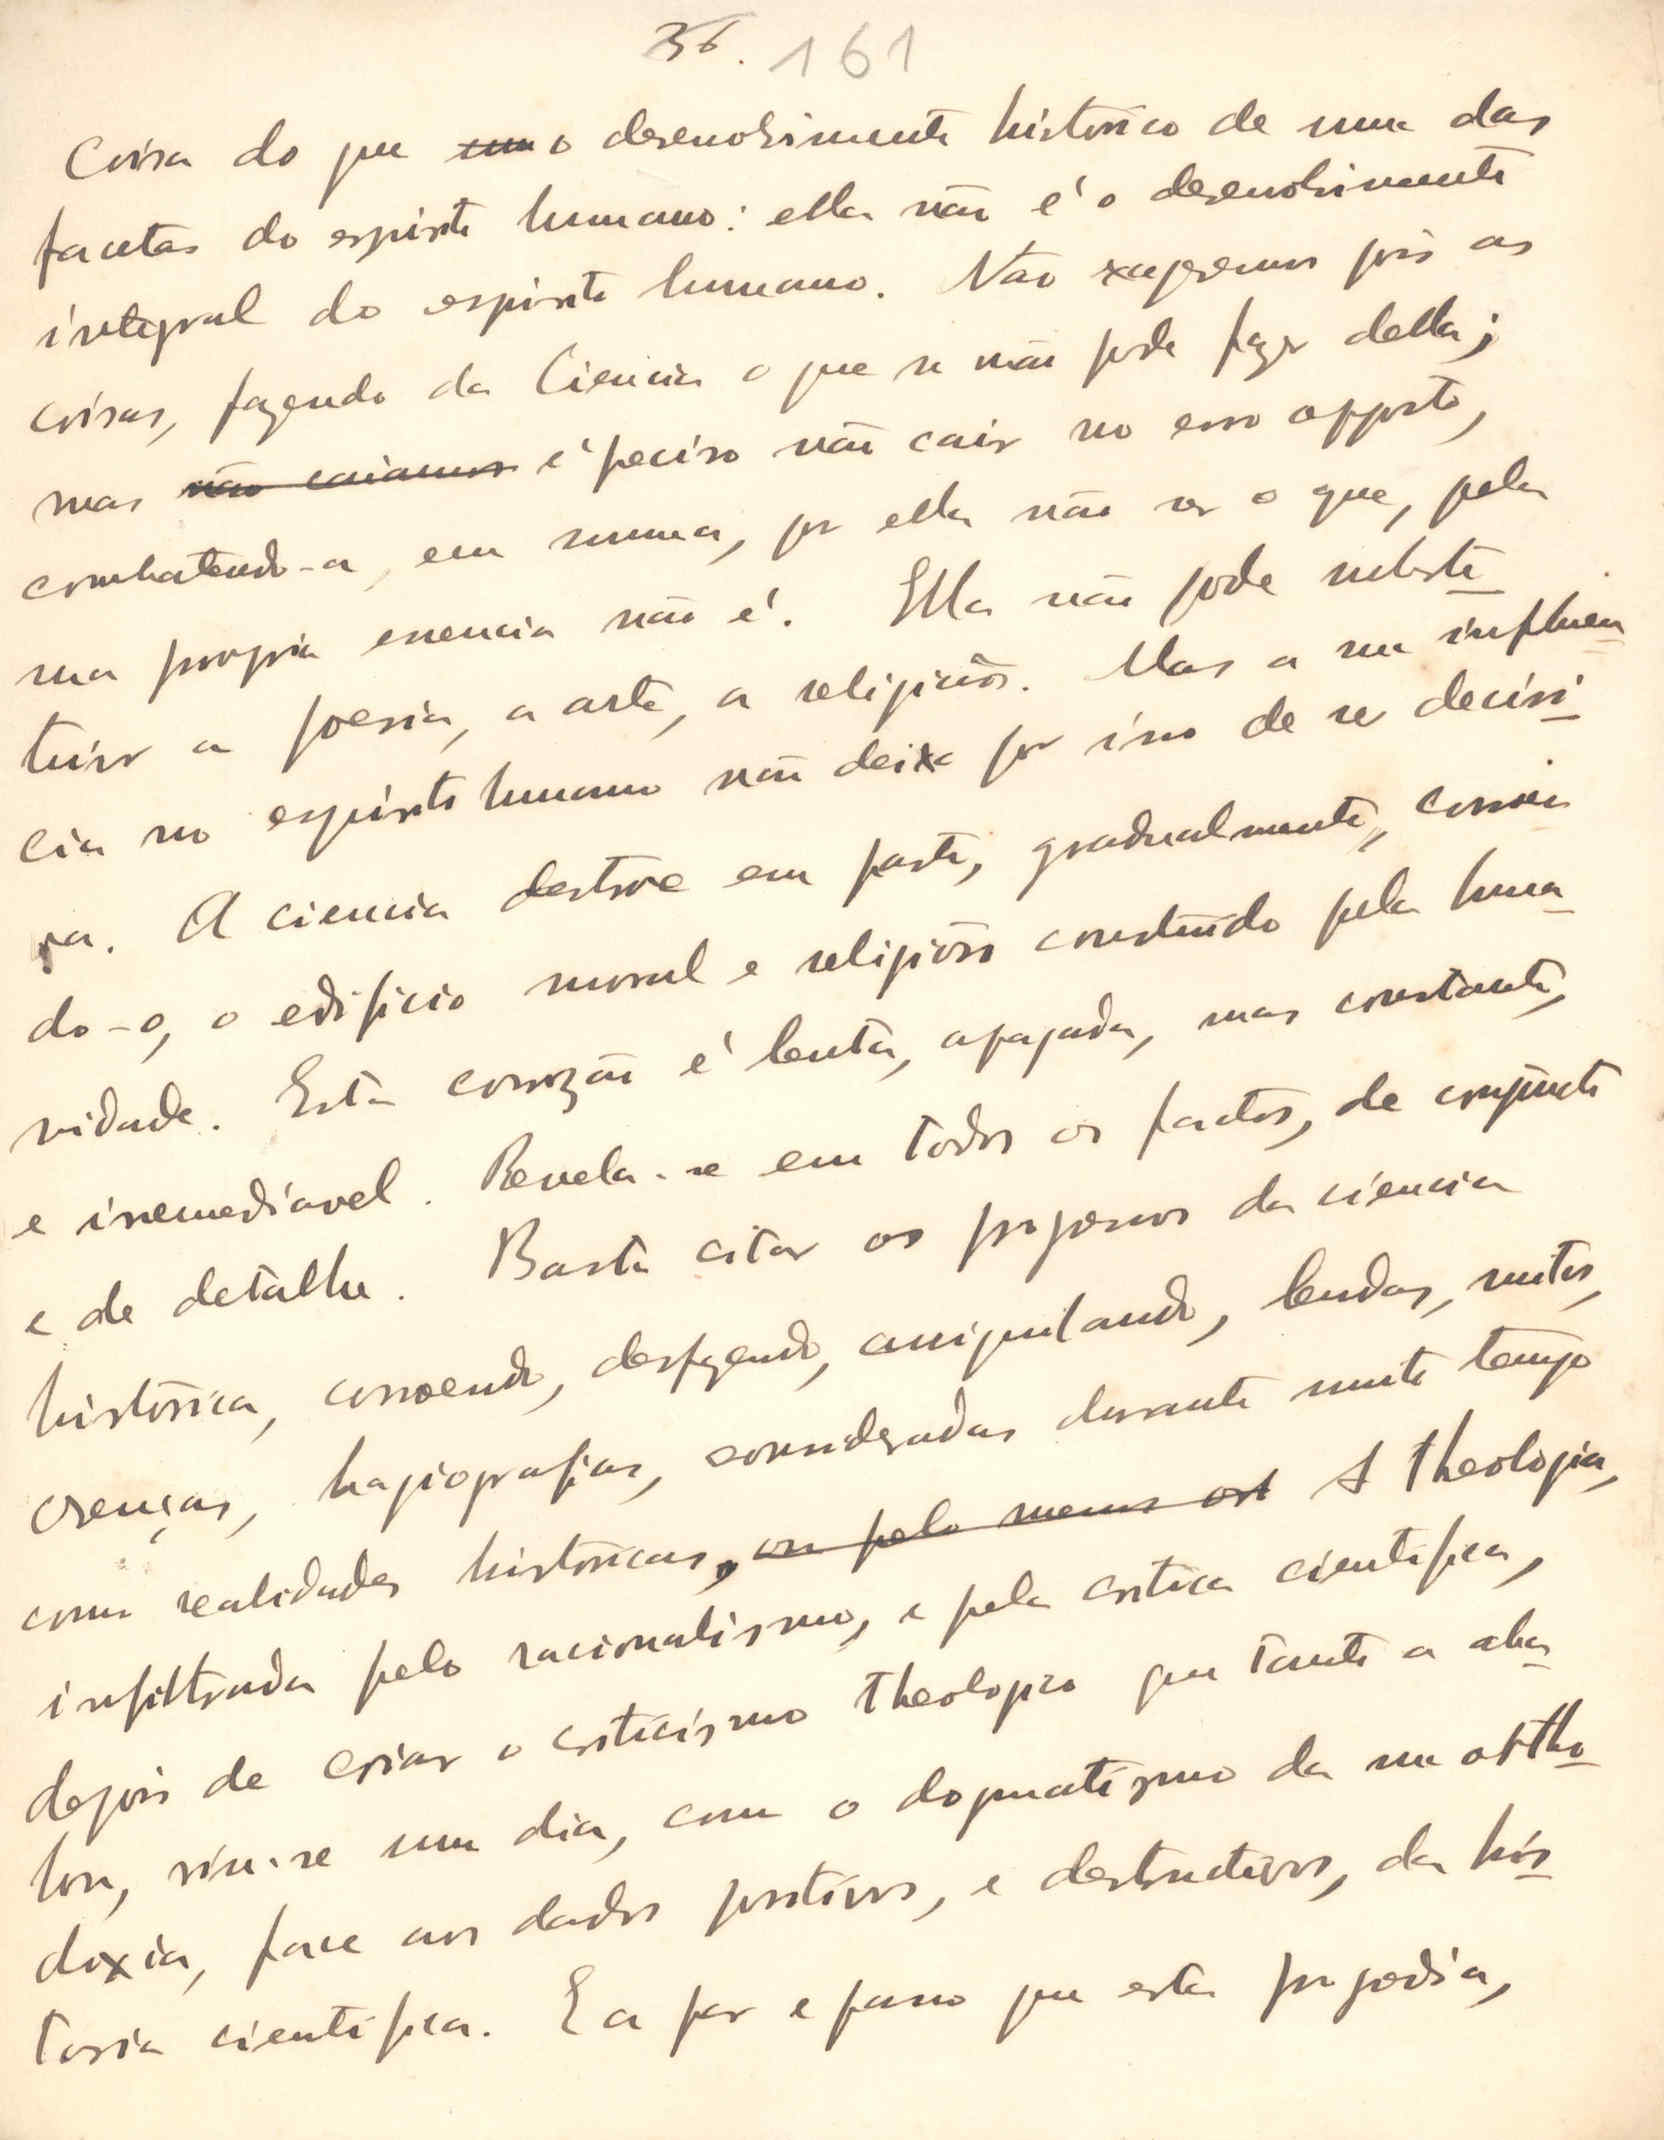 36. 161
Coisa do que um o desenvolvimento historico de uma das
facetas do espirito humano: ella não é o desenvolvimento
integral do espirito humano. Não exageremos pois as
coisas, fazendo da Ciencia o que se não pode fazer della;
mas não caiamos é preciso não cair no erro opposto,
combatendo-a, em summa, por ella não ser o que, pela
sua propria essencia não é. Ella não pode substi-
tuir a poesia, a arte, a religião. Mas a sua influen-
cia no espirito humano não deixa por isso de ser decisi-
va. A ciencia destroe em parte, gradualmente, corroen
do-o, o edificio moral e religioso construido pela huma-
nidade. Esta corrozão é lenta, apagada, mas constante,
e irremediavel. Revela-se em todos os factos, de conjuncto
e de detalhe. Basta citar os progressos da ciencia
historica, corroendo, desfazendo, aniquilando, lendas, mitos,
crenças, hagiografias, consideradas durante muito tempo
como realidades historicas, ou pelo menos art A theologia,
infiltrada pelo racionalismo, e pela critica cientifica,
depois de criar o criticismo theologico que tanto a aba-
lou, viu-se um dia, com o dogmatismo da sua ortho-
doxia, face aos dados positivos, e destructivos, da his-
toria cientifica. E a par e passo que esta progredia,